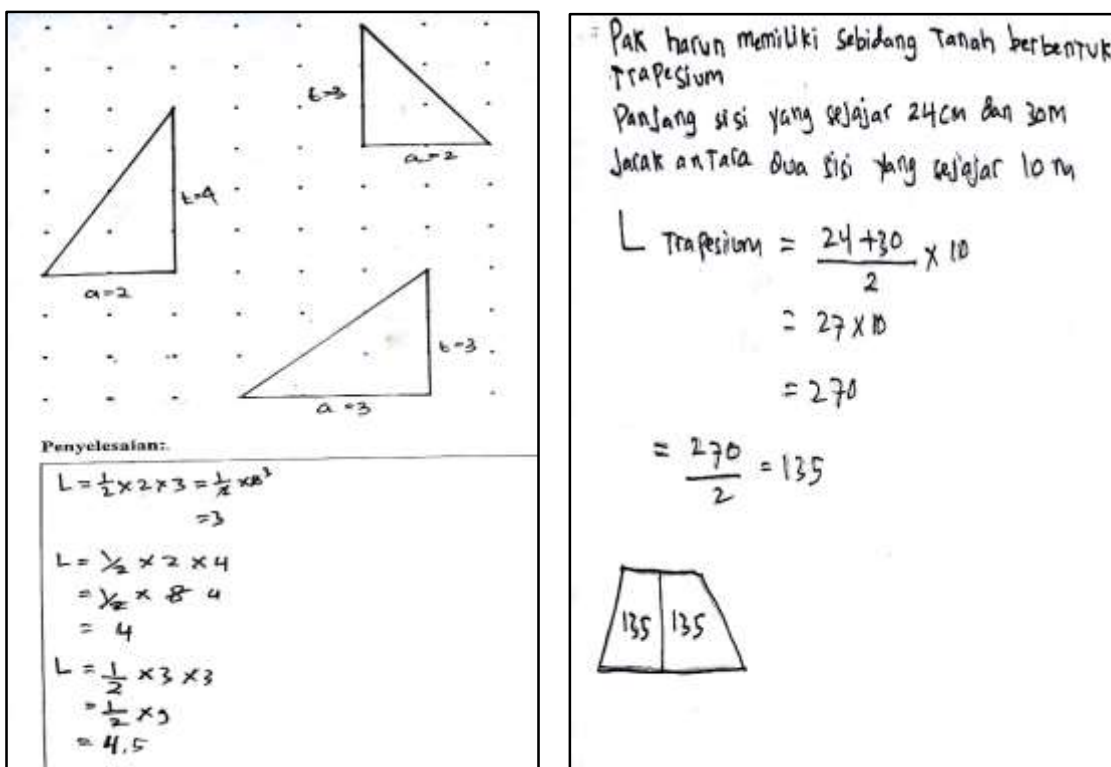 t=3
a=2
t=4
a=2
t=3
a=3
Penyelesaian:.
L = 1/2 × 2 × 3 = 1/2 ×
= 3
L = 1/2 × 2 × 4
= 1/2 × 8 4
= 4
L = 1/2 × 3 × 3
= 1/2 × 9
= 4,5
Pak harun memiliki sebidang Tanah berbentuk
Trapesium
Panjang sisi yang sejajar 24cm dan 30M
Jarak anTara dua sisi yang sejajar 10 m
L Trapesium = 24 + 30 / 2 × 10
= 27 × 10
= 270
= 270 / 2 = 135
135 135